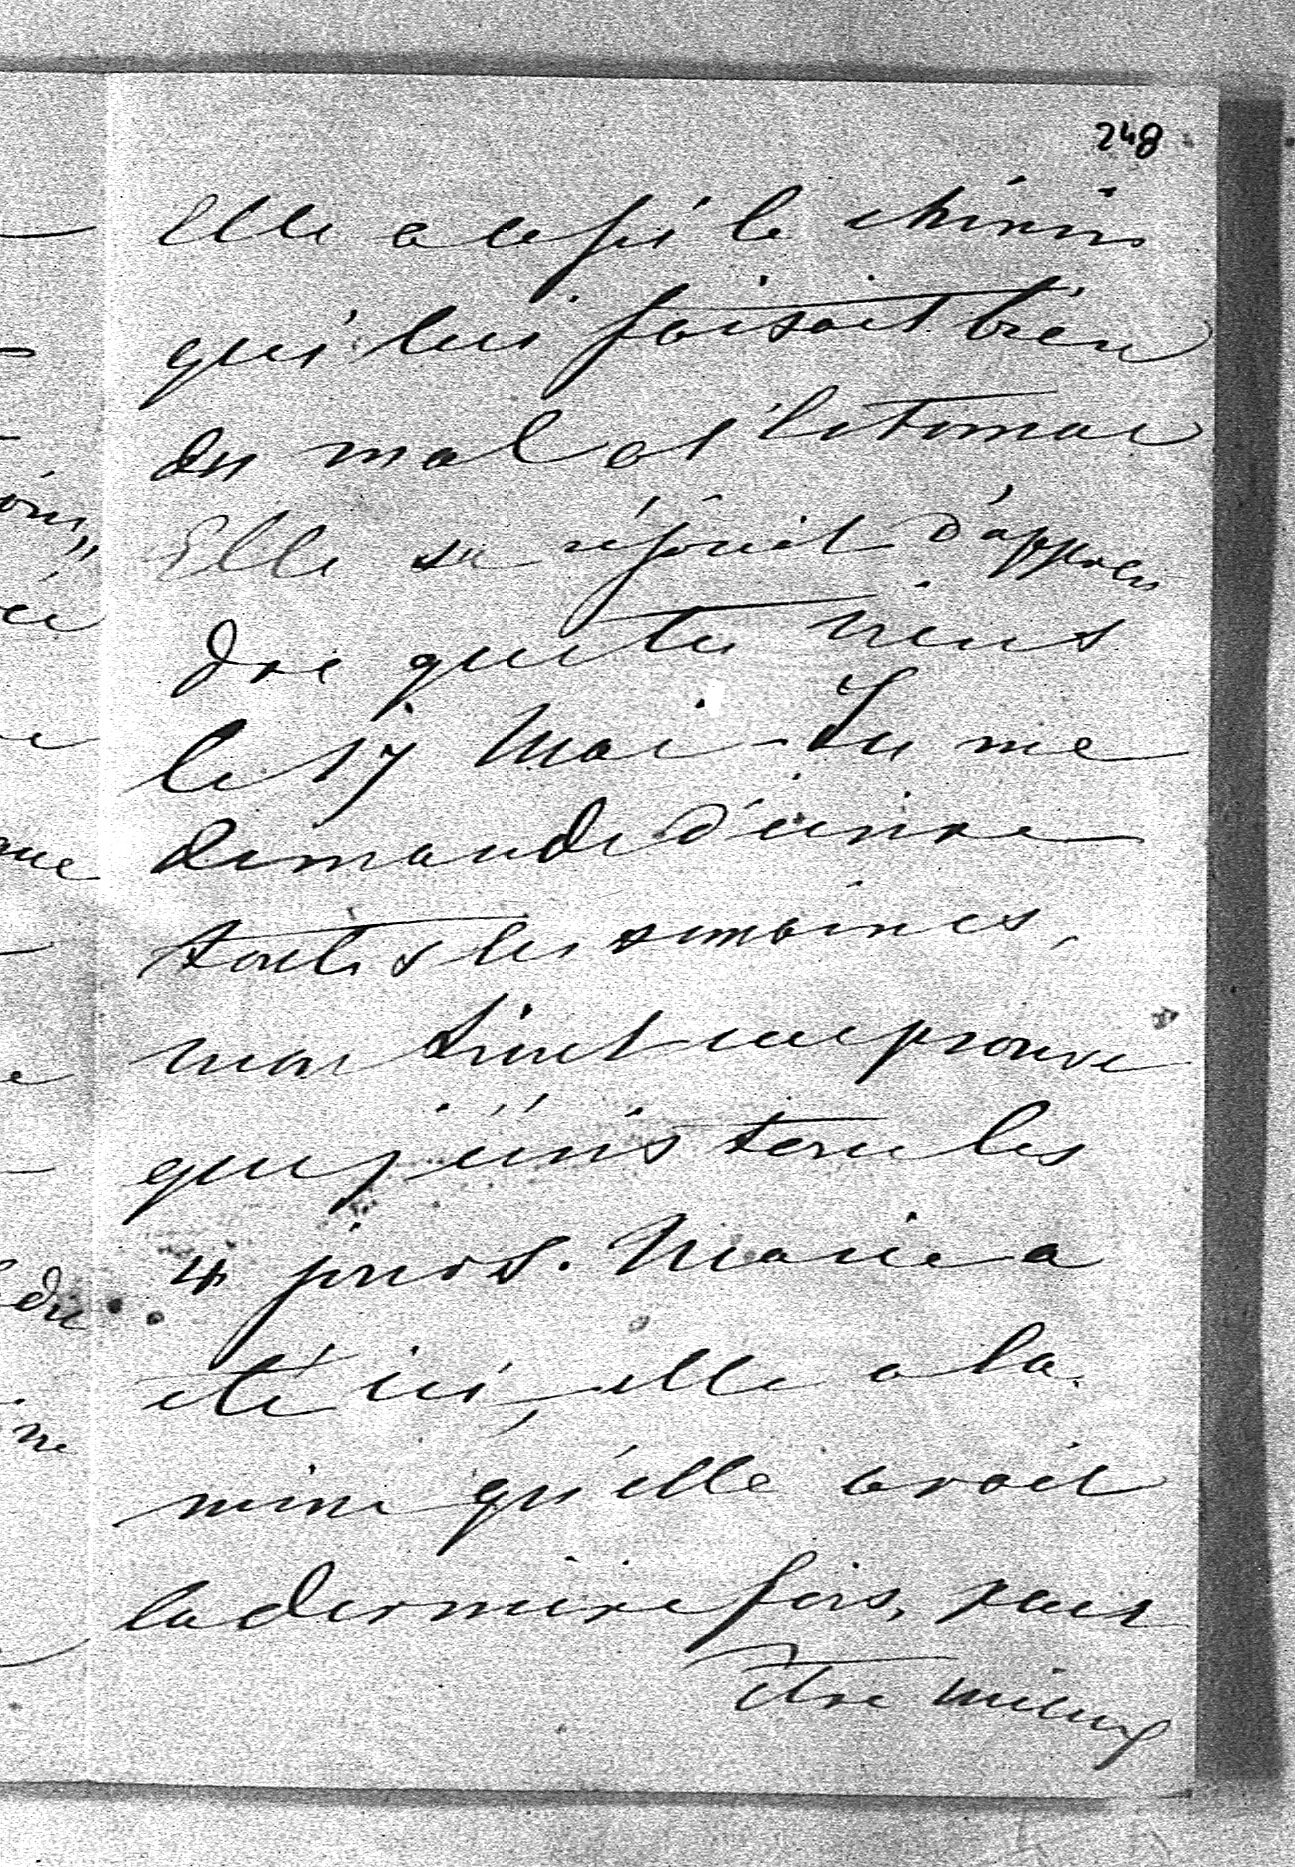 248
Elle a cessé le chinin
qui lui faisait bien
du mal à l'estomac
Elle se réjouit d'appren
dre que tu viens
le 17 Mai. Tu me
demande d'écrire
toutes les semaines,
mon
que j'écris tous les
4 jours. Marie a
été ici, elle a la
mine qu'elle avait
la dernière fois, peut
être mieux